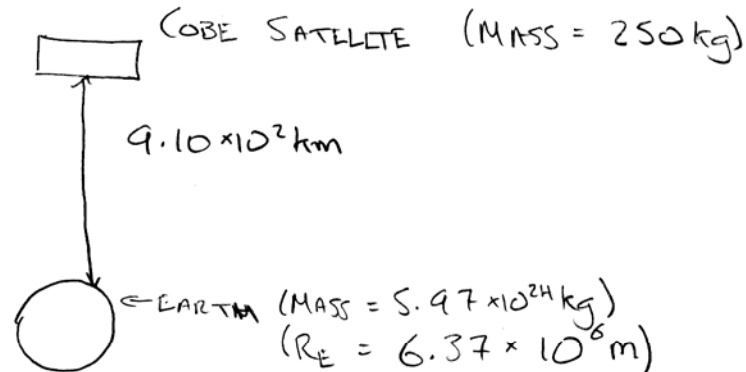 COBE SATELLITE (MASS = 250 kg)
9.10 × 10² km
← EARTH (MASS = 5.97 × 10²⁴ kg)
(R_E = 6.37 × 10⁶ m)